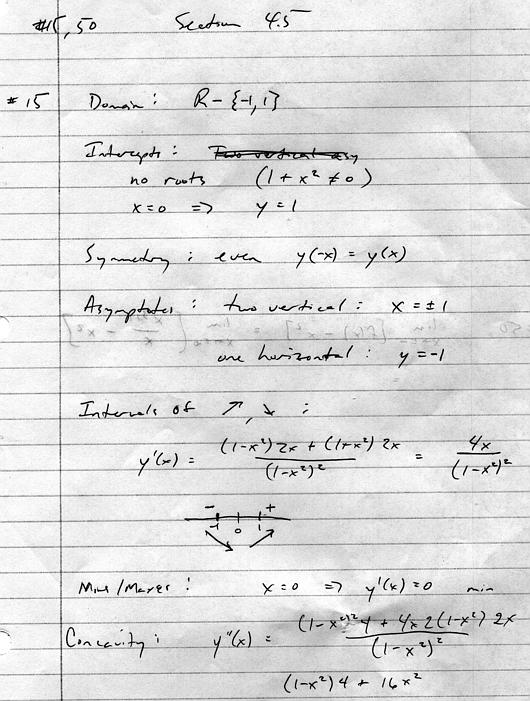 #15, 50 Section 4.5
#15 Domain: R - {-1, 1}
Intercepts: Two vertical asy
no roots (1 + x² ≠ 0)
x=0 => y = 1
Symmetry: even y(-x) = y(x)
Asymptotes: two vertical: x = ±1
one horizontal: y = -1
Intervals of ↗, ↘ :
y'(x) = (1-x²)2x + (1+x²)2x / (1-x²)² = 4x / (1-x²)²
- +
-1 0 1
Mins/Maxes: x=0 => y'(x)=0 min
Concavity: y''(x) = (1-x²)² 4 + 4x 2(1-x²) 2x / (1-x²)²
(1-x²)4 + 16x²